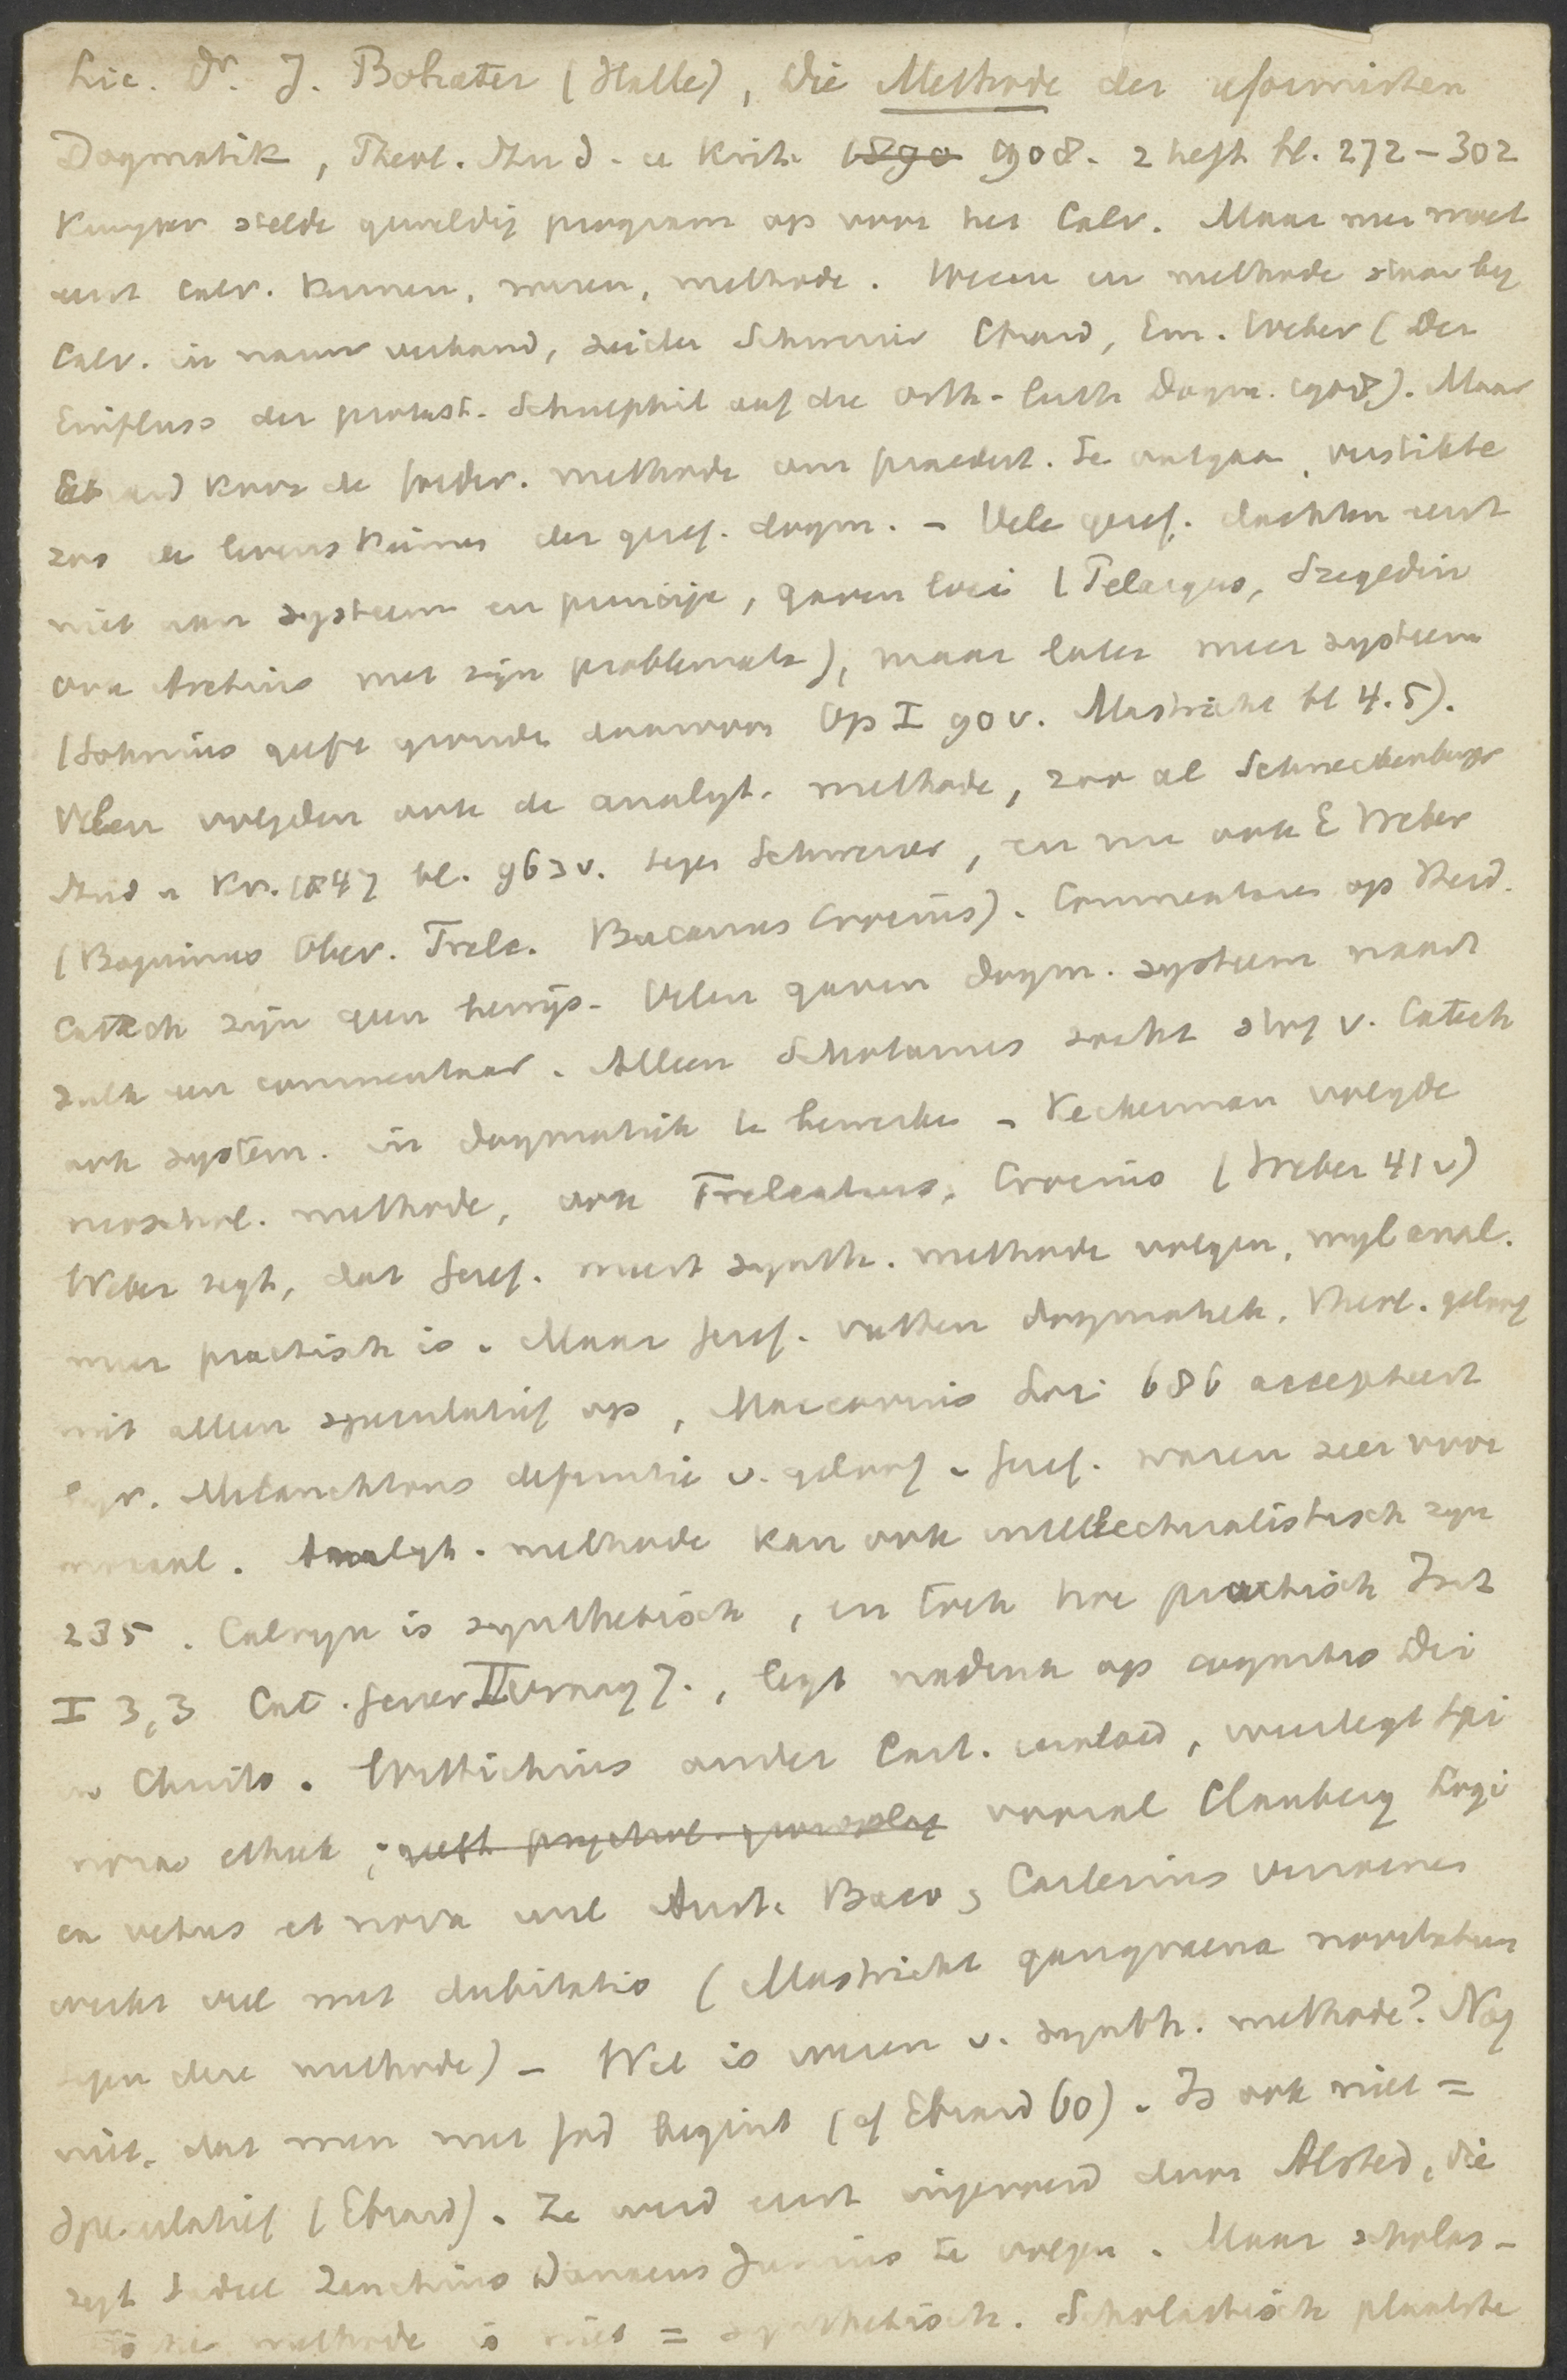 Lic. Dr. J. Bohatec (Halle), Die Methode der reformirten
Dogmatik, Theol. Stud. u Krit. 1890 1908. 2 heft bl. 272-302
Kuyper stelde geweldig program op voor het Calv. Maar men moet
eerst Calv. kennen, wezen, methode. Wezen en methode staan bij
Calv. in nauw verband, zeiden Schweizer Ebrard, Em. Weber (Der
Einfluss der protest. Schulphil auf die orth-luth Dogm. 1908). Maar
Ebrard koos de foeder. methode om praedest. te ontgaan, verstikte
zoo de levenskiemen der geref. dogm. - Vele geref. dachten eerst
niet aan systeem en principe, gaven loci (Pelargus, Szegedin
ook Aretius met zijn problemata), maar later meer systeem
(Sohnius geeft gronden daarvoor Op I 90 v. Mastricht bl 4.5).
Velen volgden ook de analyt. methode, zoo al Schneckenburger
Stud u Kr. 1847 bl. 963v. tegen Schweizer, en nu ook E Weber
(Boquinus Olev. Trelc. Bucanus Crocius). Commentaren op Heid.
Catech zijn geen bewijs. Velen gaven dogm. systeem naast
zulk een commentaar. Alleen Schotanus zocht stof v. Catech
ook system. in dogmatiek te bewerken - Keckerman volgde
neoschol. methode, ook Trelcatius, Crocius (Weber 41v)
Weber zegt, dat Geref. meest synth. methode volgen, wijl anal.
meer practisch is. Maar Geref. vatten dogmatiek, theol. geloof
niet alleen speculatief op, Maccovius Loci 686 accepteert
bijv. Melanchtons definitie v. geloof. Geref. waren zeer voor
moraal. Analyt. methode kan ook intellectualistisch zijn
235. Calvijn is synthetisch, en toch hoe practisch Inst
I 3,3 Cat. Genev II vraag 7., legt nadruk op cognitio Dei
in Christo. Wittichius onder Cart. invloed, weerlegt Spi
noza's ethiek, geeft psychol. grondslag vooral Clauberg Logi
ca vetus et nova wil Arist. Baco, Cartesius vereenen
werkt veel met dubitatio (Mastricht gangraena novitatum
tegen deze methode) - Wat is wezen v. synth. methode? Nog
niet, dat men met God begint (cf Ebrard 60). Is ook niet =
speculatief (Ebrard). Ze werd eerst ingevoerd door Alsted, die
zegt Sadeel Zanchius Danaeus Junius te volgen. Maar scholas-
tische methode is niet = synthetisch. Scholastisch plaatste